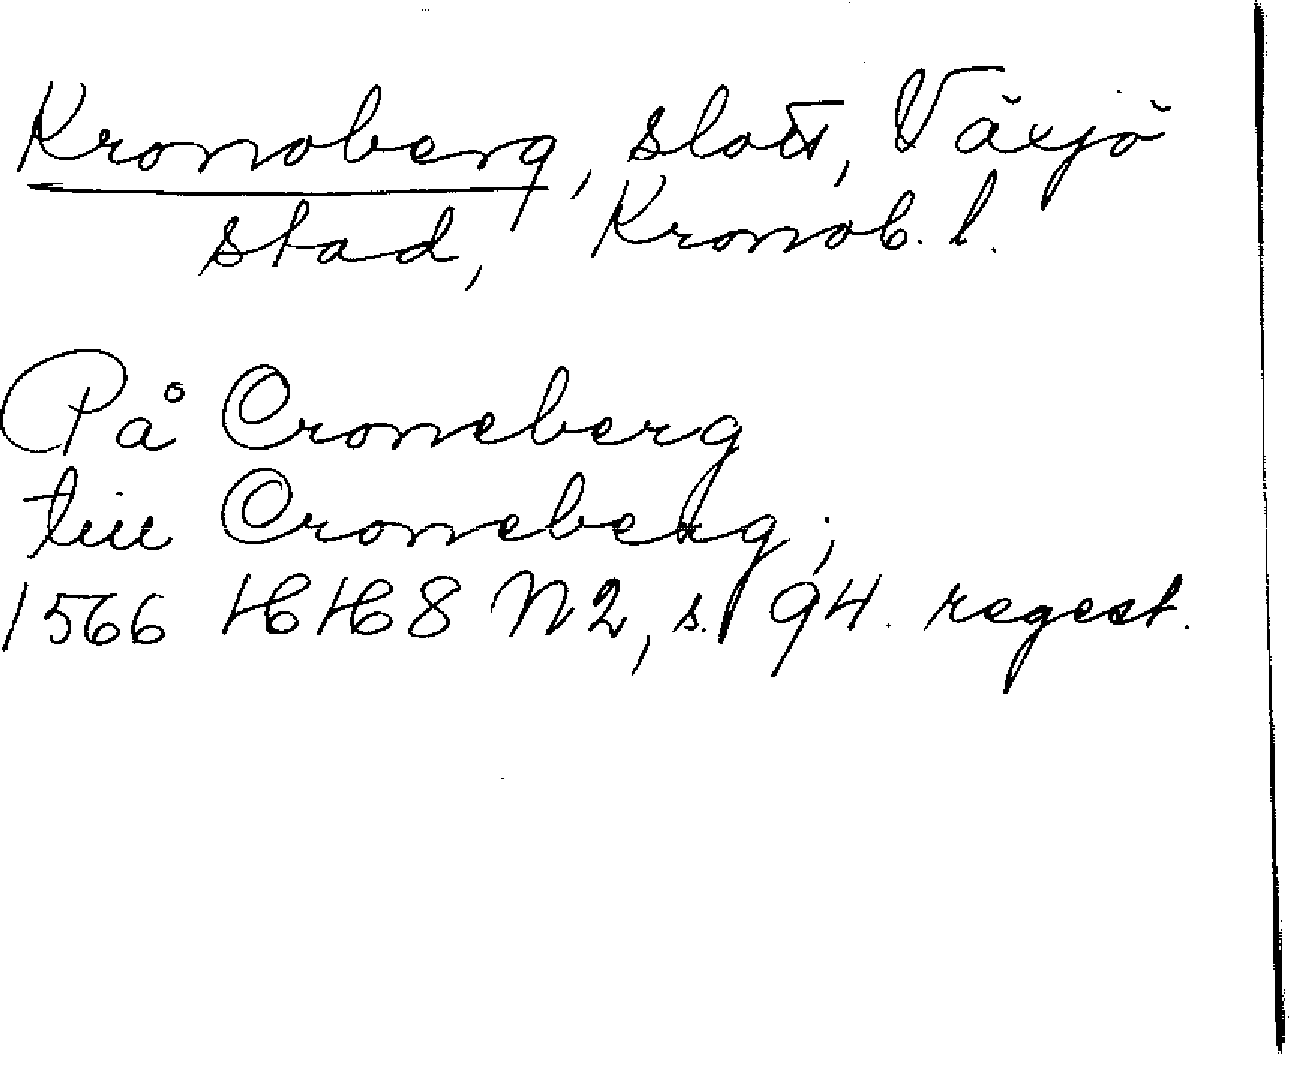 Kronoberg, slott, Växjö
stad, Kronob. l.
På Croneberg
till Croneberg;
1566 HH8 N2, s. 94. regest.